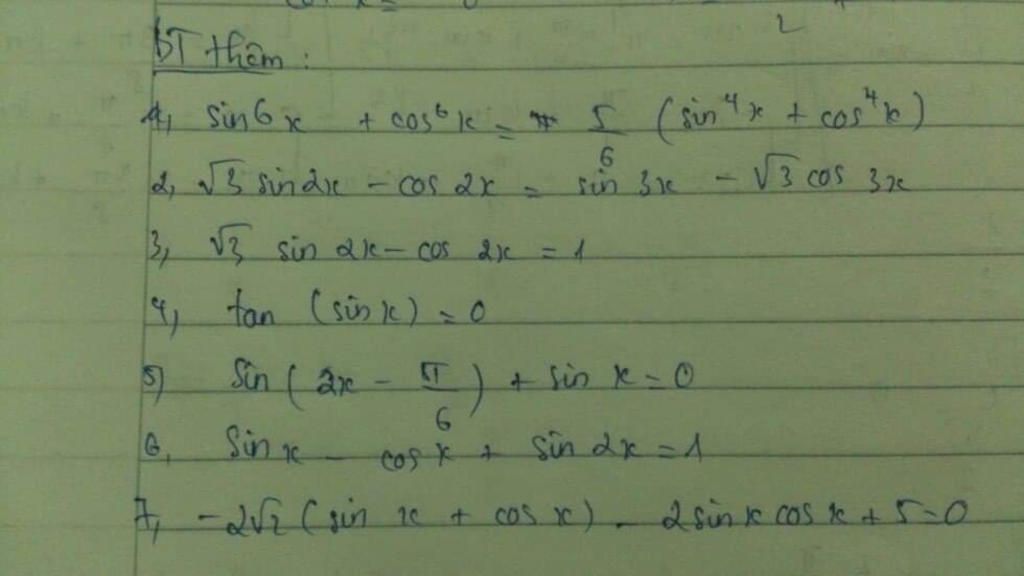 BT thêm :
1, sin6x + cos⁶x = 5/6 (sin⁴x + cos⁴x)
2, √3 sin2x - cos 2x = sin 3x - √3 cos 3x
3, √3 sin 2x - cos 2x = 1
4, tan (sin x) = 0
5) Sin (2x - π/6) + sin x = 0
6, Sin x - cos x + sin 2x = 1
7, -2√2 (sin x + cos x) - 2sinx cos x + 5 = 0